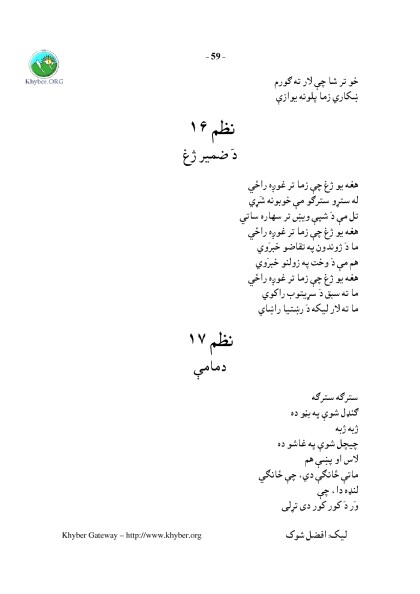 - 59 -
Khyber.ORG
خو تر شا چې لار ته ګورم
ښکاري زما پلونه يوازې
نظم ۱۶
دَ ضمير ژغ
هغه يو ژغ چې زما تر غوږه راځي
له سترو سترګو مې خوبونه شړي
تل مې دَ شپې ويښ تر سهاره ساتي
هغه يو ژغ چې زما تر غوږه راځي
ما دَ ژوندون په تقاضو خبروي
هم مې دَ وخت په زولنو خبروي
هغه يو ژغ چې زما تر غوږه راځي
ما ته سبق دَ سړيتوب راکوي
ما ته لار ليکه دَ رښتيا راښاي
نظم ۱۷
دمامې
سترګه سترګه
ګنډل شوې په بڼو ده
ژبه ژبه
چيچل شوې په غاشو ده
لاس او پښې هم
ماتې څانګې دي، چې ځانګي
لنډه دا، چې
وَر دَ کور کور دی تړلی
ليک: افضل شوک
Khyber Gateway – http://www.khyber.org